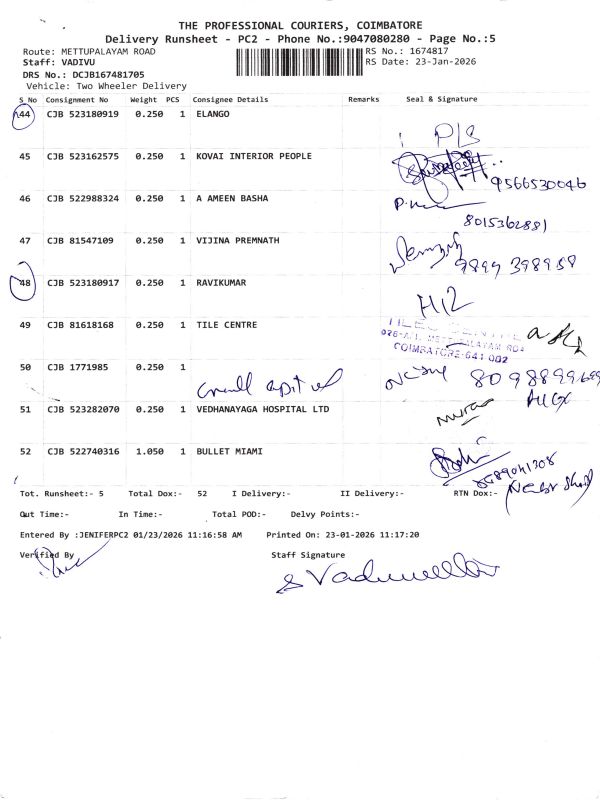 THE PROFESSIONAL COURIERS, COIMBATORE
Delivery Runsheet - PC2 - Phone No.:9047080280 - Page No.:5
Route: METTUPALAYAM ROAD RS No.: 1674817
Staff: VADIVU RS Date: 23-Jan-2026
DRS No.: DCJB167481705
Vehicle: Two Wheeler Delivery
S_No Consignment No Weight PCS Consignee Details Remarks Seal & Signature
44 CJB 523180919 0.250 1 ELANGO
P/B
45 CJB 523162575 0.250 1 KOVAI INTERIOR PEOPLE
9566530046
46 CJB 522988324 0.250 1 A AMEEN BASHA
8015362881
47 CJB 81547109 0.250 1 VIJINA PREMNATH
9894 398958
48 CJB 523180917 0.250 1 RAVIKUMAR
H/2
49 CJB 81618168 0.250 1 TILE CENTRE
TILES CENTRE
METTUPALAYAM ROAD
COIMBATORE-641 002
50 CJB 1771985 0.250 1
8098899699
51 CJB 523282070 0.250 1 VEDHANAYAGA HOSPITAL LTD
52 CJB 522740316 1.050 1 BULLET MIAMI
Tot. Runsheet:- 5 Total Dox:- 52 I Delivery:- II Delivery:- RTN Dox:-
Out Time:- In Time:- Total POD:- Delvy Points:-
Entered By :JENIFERPC2 01/23/2026 11:16:58 AM Printed On: 23-01-2026 11:17:20
Verified By Staff Signature